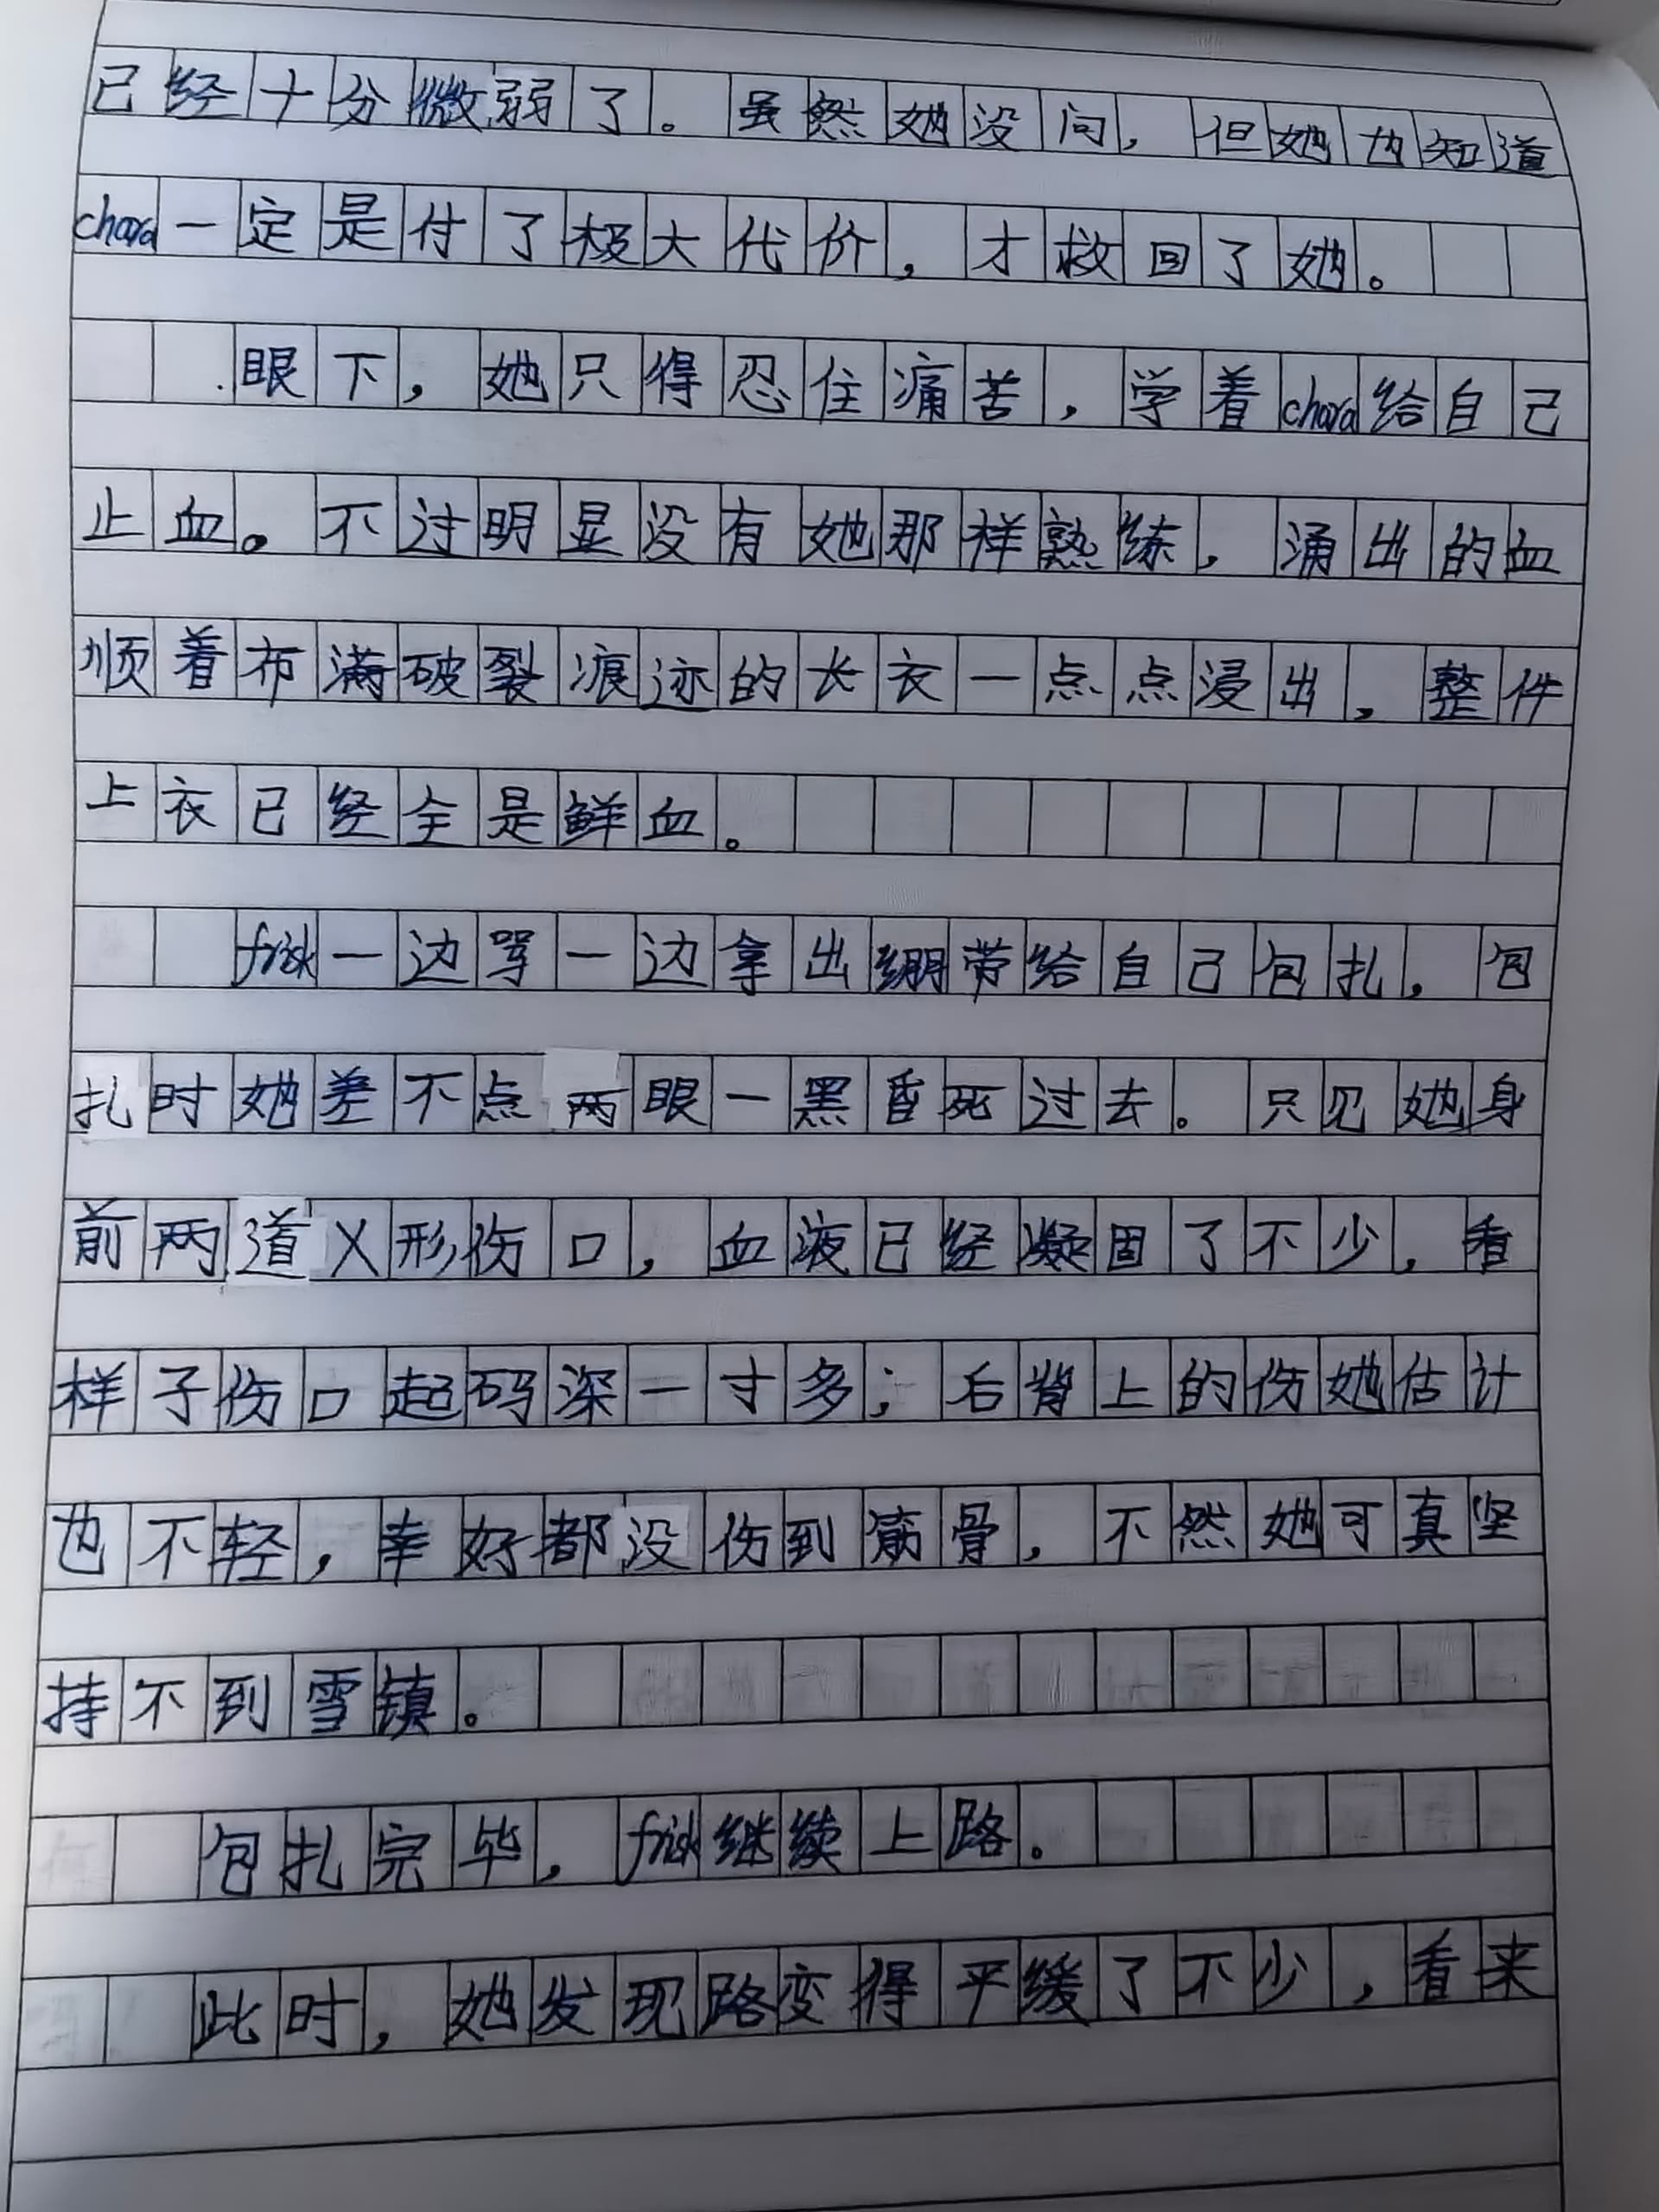 已经十分微弱了。虽然她没问，但她也知道
chara一定是付了极大代价，才救回了她。
眼下，她只得忍住痛苦，学着chara给自己
止血。不过明显没有她那样熟练，涌出的血
顺着布满破裂痕迹的长衣一点点浸出，整件
上衣已经全是鲜血。
frisk一边骂一边拿出绷带给自己包扎，包
扎时她差不点两眼一黑昏死过去。只见她身
前两道乂形伤口，血液已经凝固了不少，看
样子伤口起码深一寸多；后背上的伤她估计
也不轻，幸好都没伤到筋骨，不然她可真坚
持不到雪镇。
包扎完毕，frisk继续上路。
此时，她发现路变得平缓了不少，看来